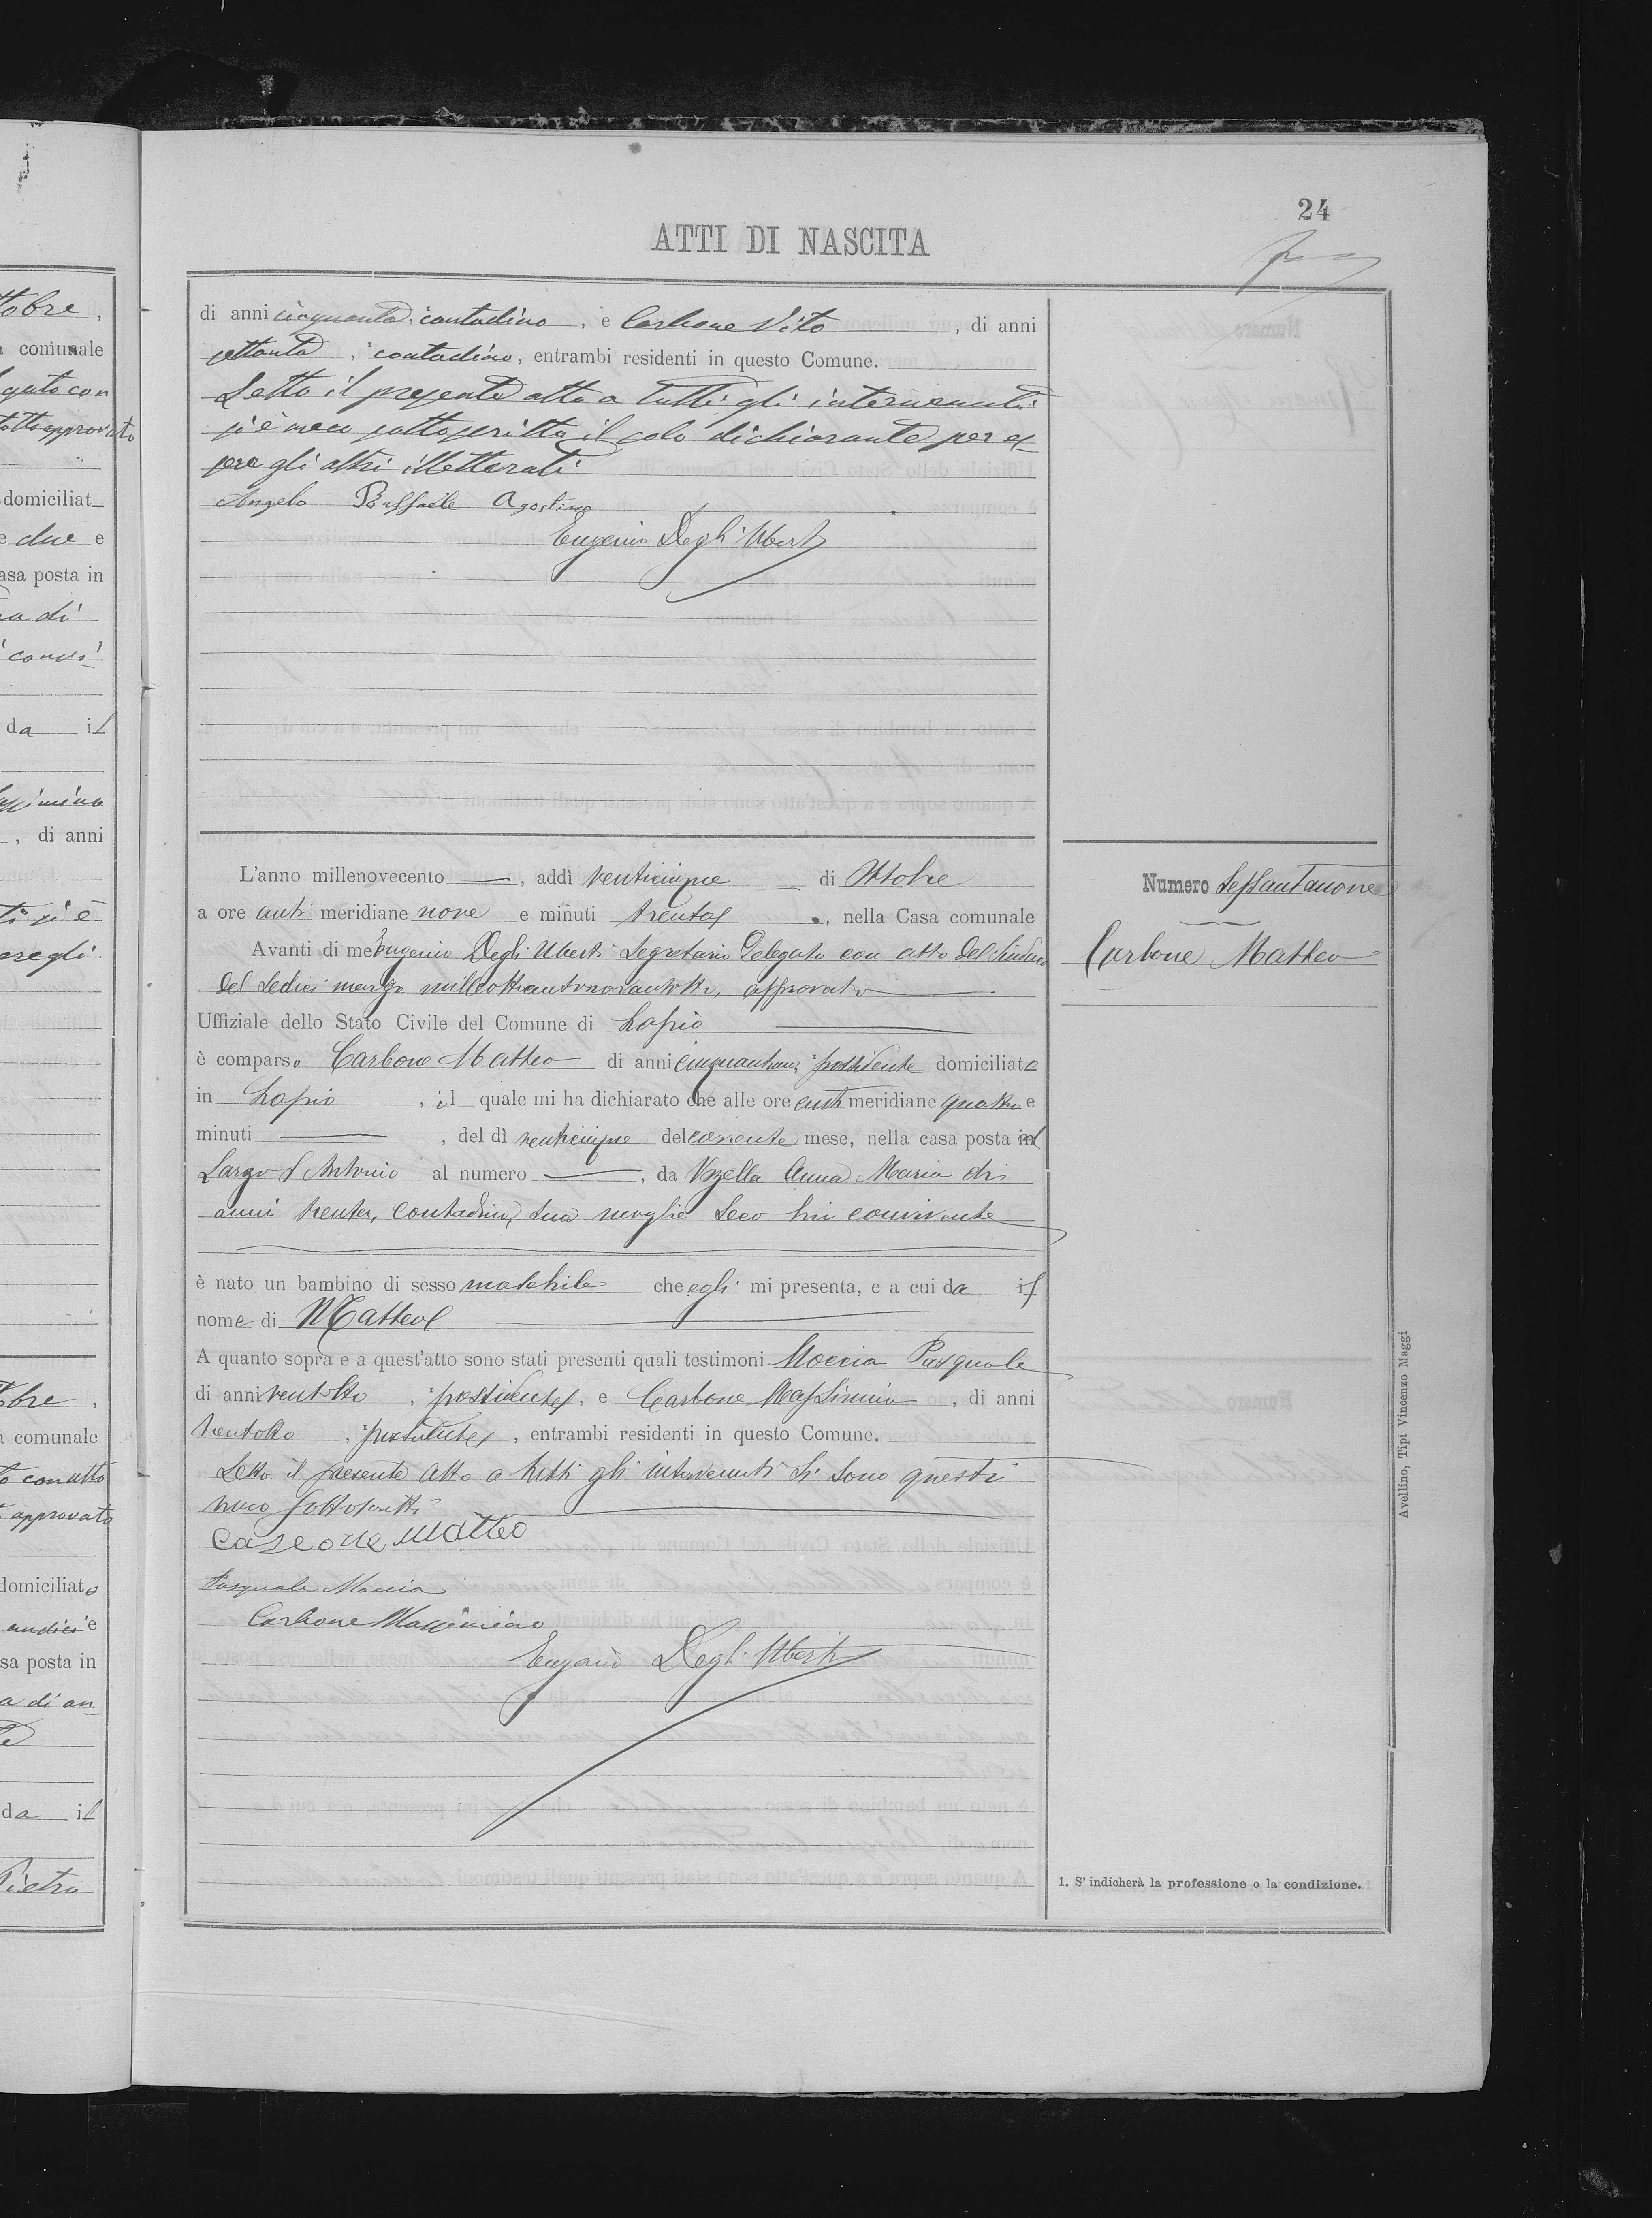 24
ATTI DI NASCITA
di anni cinquanta, contadino, e Carbone Vito, di anni
settanta, contadino, entrambi residenti in questo Comune.
Letto il presente atto a tutti gli intervenuti
si è meco sottoscritto il solo dichiarante per es-
sere gli altri illetterati
Angelo Raffaele Agostino
Eugenio Degli Uberti
L'anno millenovecento —, addì venticinque di Ottobre
a ore anti meridiane nove e minuti trenta, nella Casa comunale
Avanti di me Eugenio Degli Uberti Segretario Delegato con atto del Sindaco
del sedici marzo milleottocentonovantotto, approvato
Uffiziale dello Stato Civile del Comune di Lapio
è comparso Carbone Matteo di anni possidente domiciliato
in Lapio, il quale mi ha dichiarato che alle ore anti meridiane quattro e
minuti —, del dì venticinque del corrente mese, nella casa posta in
Largo S Antonio al numero —, da Anna Maria di
anni trenta, contadina, sua moglie seco lui convivente
è nato un bambino di sesso maschile che egli mi presenta, e a cui da il
nome di Matteo
A quanto sopra e a quest'atto sono stati presenti quali testimoni Moccia Pasquale
di anni ventotto, possidente, e Carbone Massimino, di anni
trentotto, possidente, entrambi residenti in questo Comune.
Letto il presente atto a tutti gli intervenuti si sono questi
meco sottoscritti
Carbone Matteo
Pasquale Moccia
Carbone Massimino
Eugenio Degli Uberti
Numero Sessantanove
Carbone Matteo
1. S'indicherà la professione o la condizione.
Avellino, Tipi Vincenzo Maggi
tobre,
a comunale
gato con
atto approvato
domiciliat
e due e
asa posta in
a di
convi-
da il
assimino
, di anni
ti si è
eregli
obre,
a comunale
to con atto
approvato
domiciliato
undici e
sa posta in
a di an
da il
Pietro